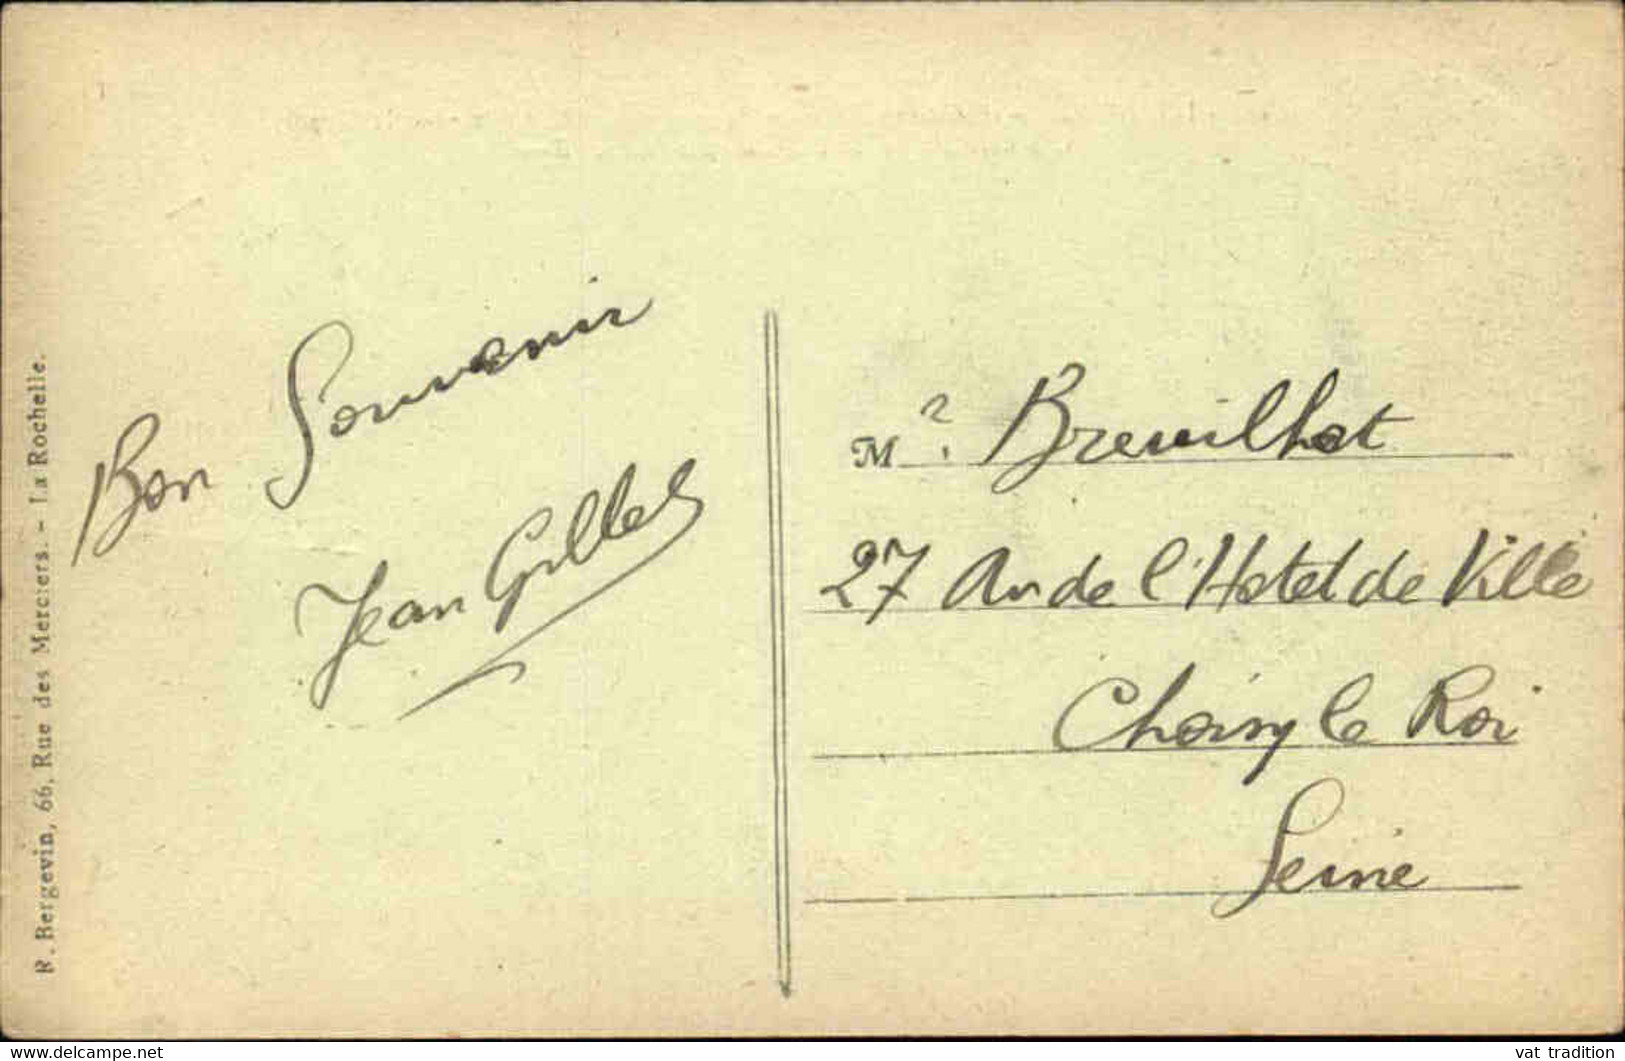 Bon Souvenir
Jean Gilles
Mr. Breuilhot
27 Av de l'Hotel de Ville
Choisy le Roi
Seine
R. Bergevin, 66, Rue des Merciers. - La Rochelle.
www.delcampe.net
vat_tradition